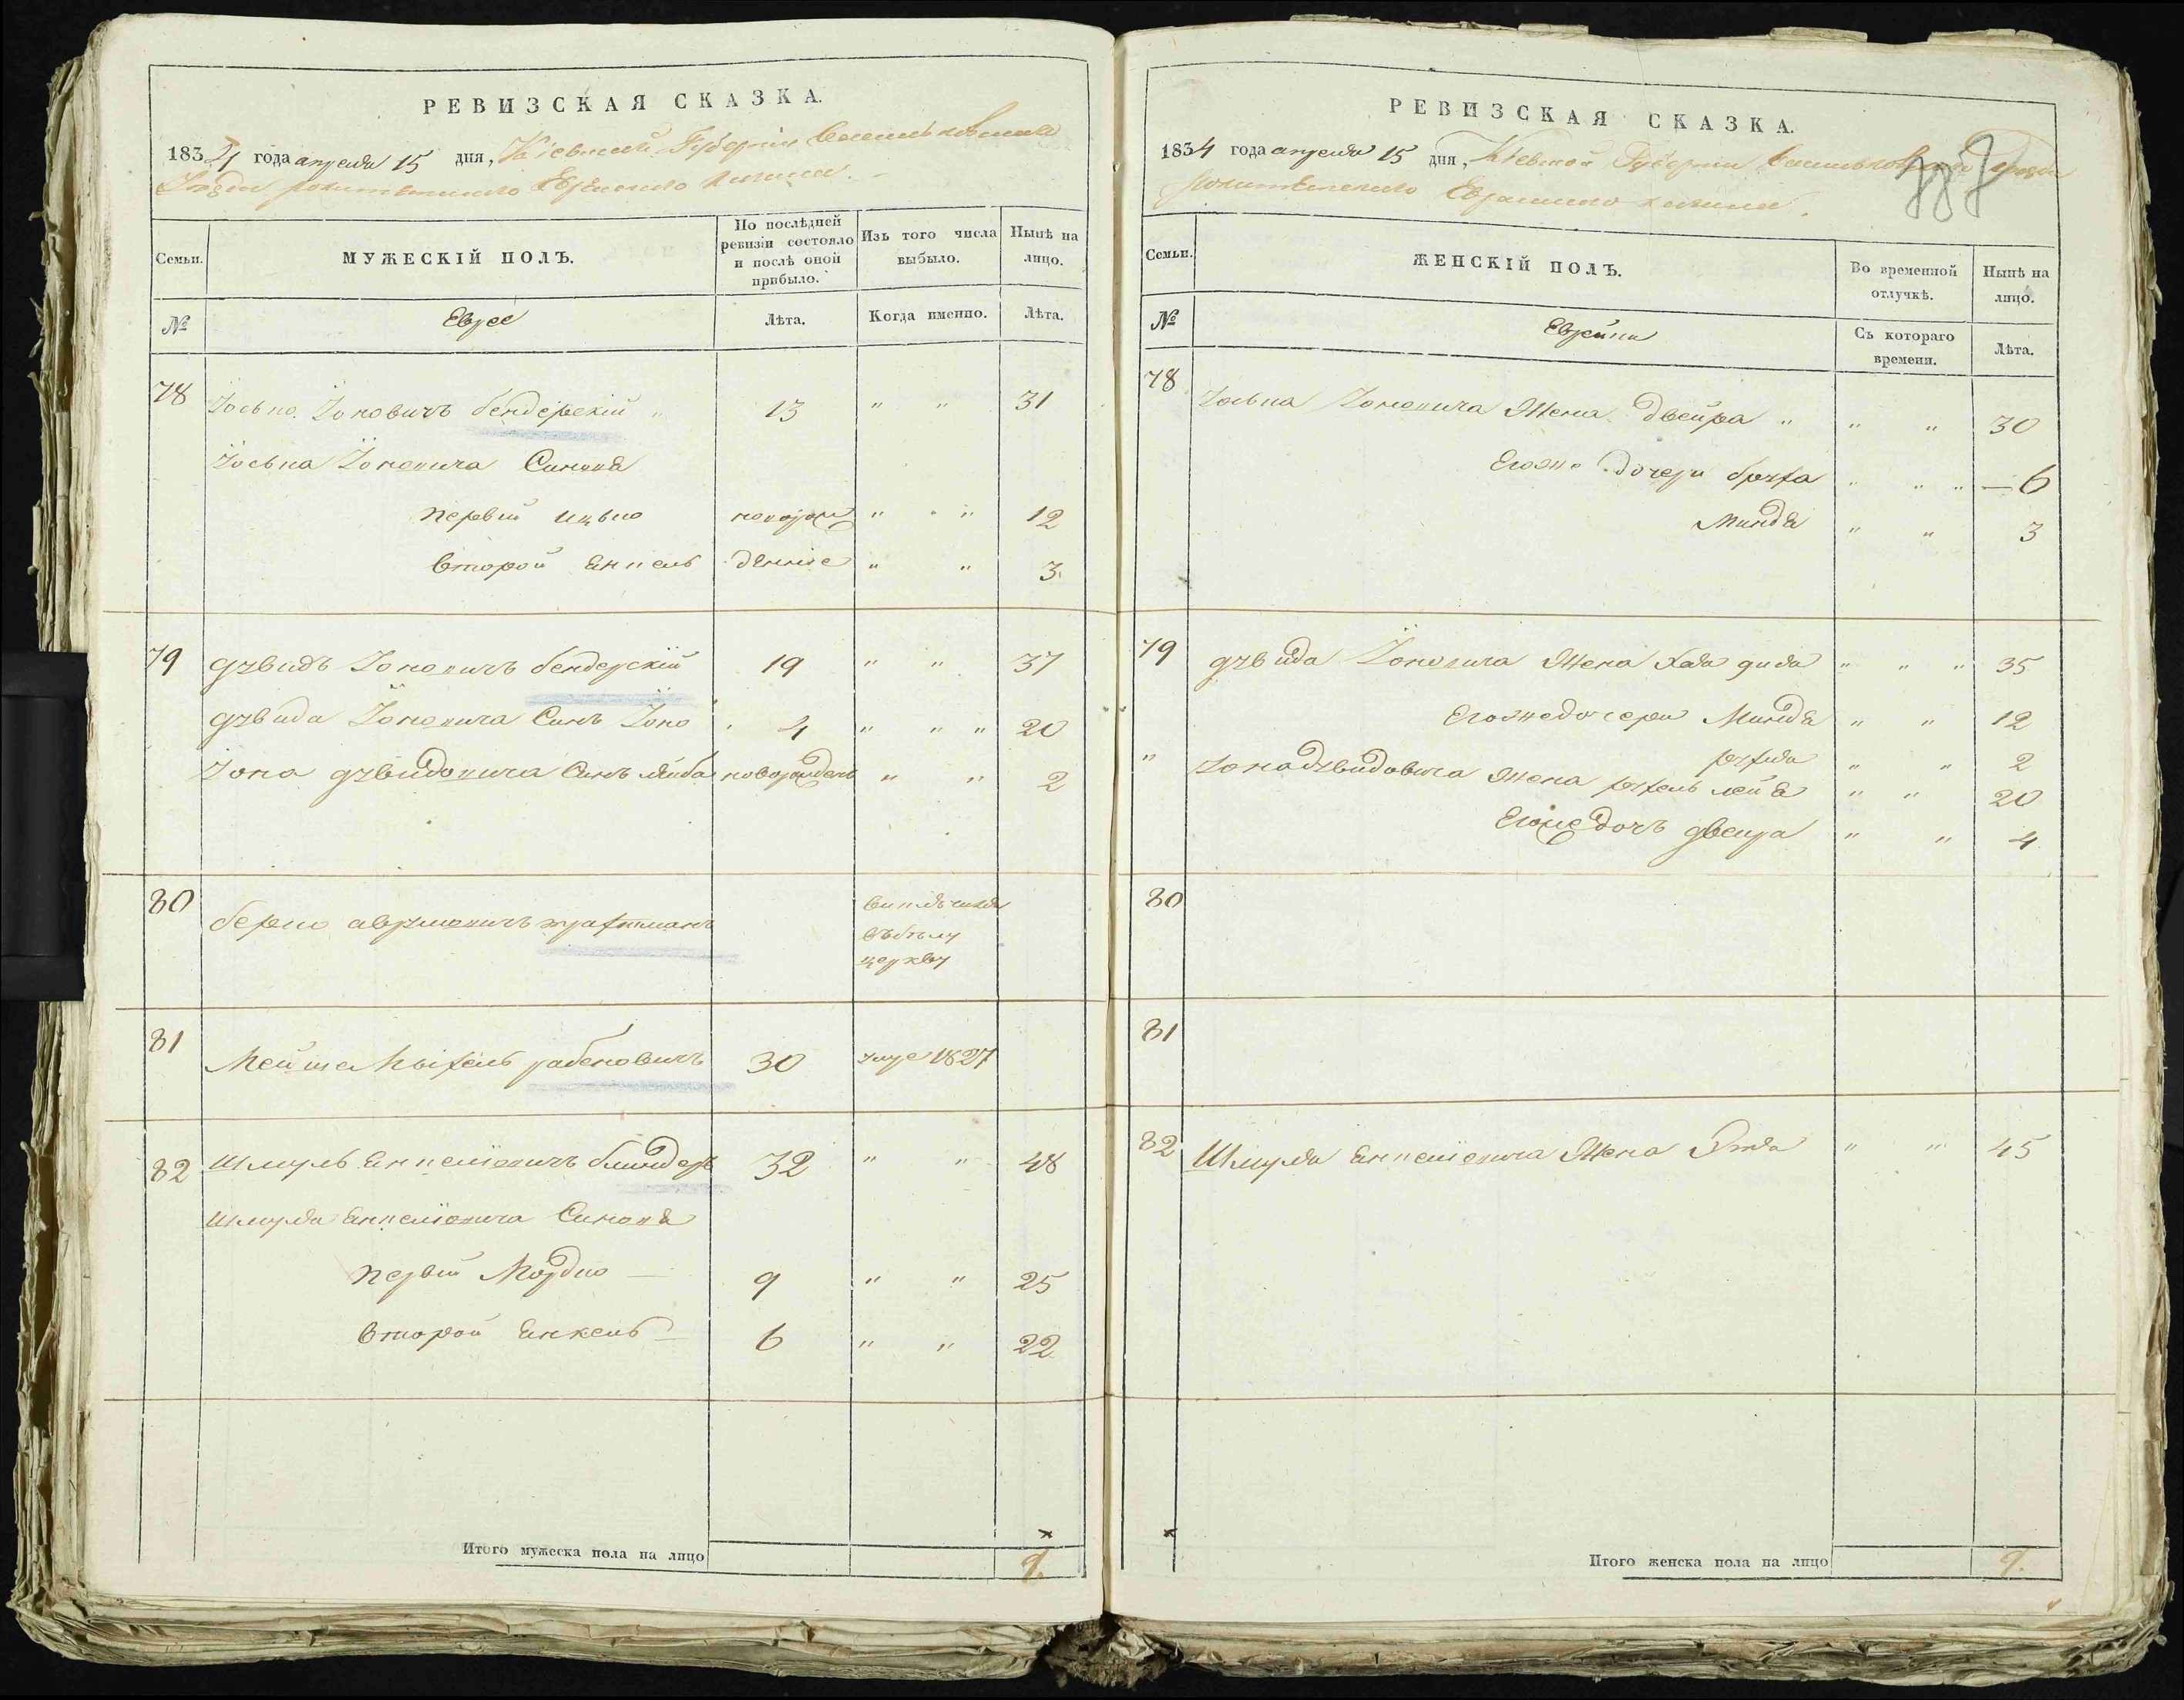 РЕВИЗСКАЯ СКАЗКА.
1834 года апреля 15 дня, Кіевской Губерніи Васильковскаго
Уезда Еврейскаго
Семьи.
МУЖЕСКІЙ ПОЛЪ.
По послѣдней ревизіи состояло и послѣ оной прибыло.
Изъ того числа выбыло.
Нынѣ на лицо.
№
Евреи
Лѣта.
Когда именно.
Лѣта.
78 Іосько Іоновичъ бендерскій " 13 " " 31
Іоська Іоновича Синовя
первій ицько новорож " " 12
второй Янкель денніе " " 3
79 Дувидъ Іоновичъ бендерскій 19 " " 37
Дувида Іоновича Синъ Іоно 4 " " " 20
Іона Дувидовича Синъ лейба новорожденъ " " 2
80 берко аврумовичъ
церкву
81 Мейше Мыхель рабеновичъ 30 Умре 1827
82 Шмуль Янкелiовичъ блиндеръ 32 " " 48
Шмуля Янкелiовича Синовя
первій Мордко — 9 " " 25
второй Енкель — 6 " " 22
Итого мужеска пола на лицо 9.
РЕВИЗСКАЯ СКАЗКА.
1834 года апреля 15 дня, Кіевской Губерніи Васильковскаго Уезда
Еврейскаго
Семьи.
ЖЕНСКІЙ ПОЛЪ.
Во временной отлучкѣ.
Нынѣ на лицо.
№
Еврейки
Съ котораго времени.
Лѣта.
78 Іоська Іоновича Жена Двейра " " " 30
Егоже Дочери бруха " " " — 6
Миндя " " 3
79 Дувида Іоновича Жена Хая " " " 35
Егоже дочери Миндя " " 12
рухля " " 2
" Іона Дувидовича Жена рухель лея " " 20
Егоже Дочь Двейра " " 4
80
81
82 Шмуля Янкелiовича Жена " " 45
Итого женска пола на лицо 9.